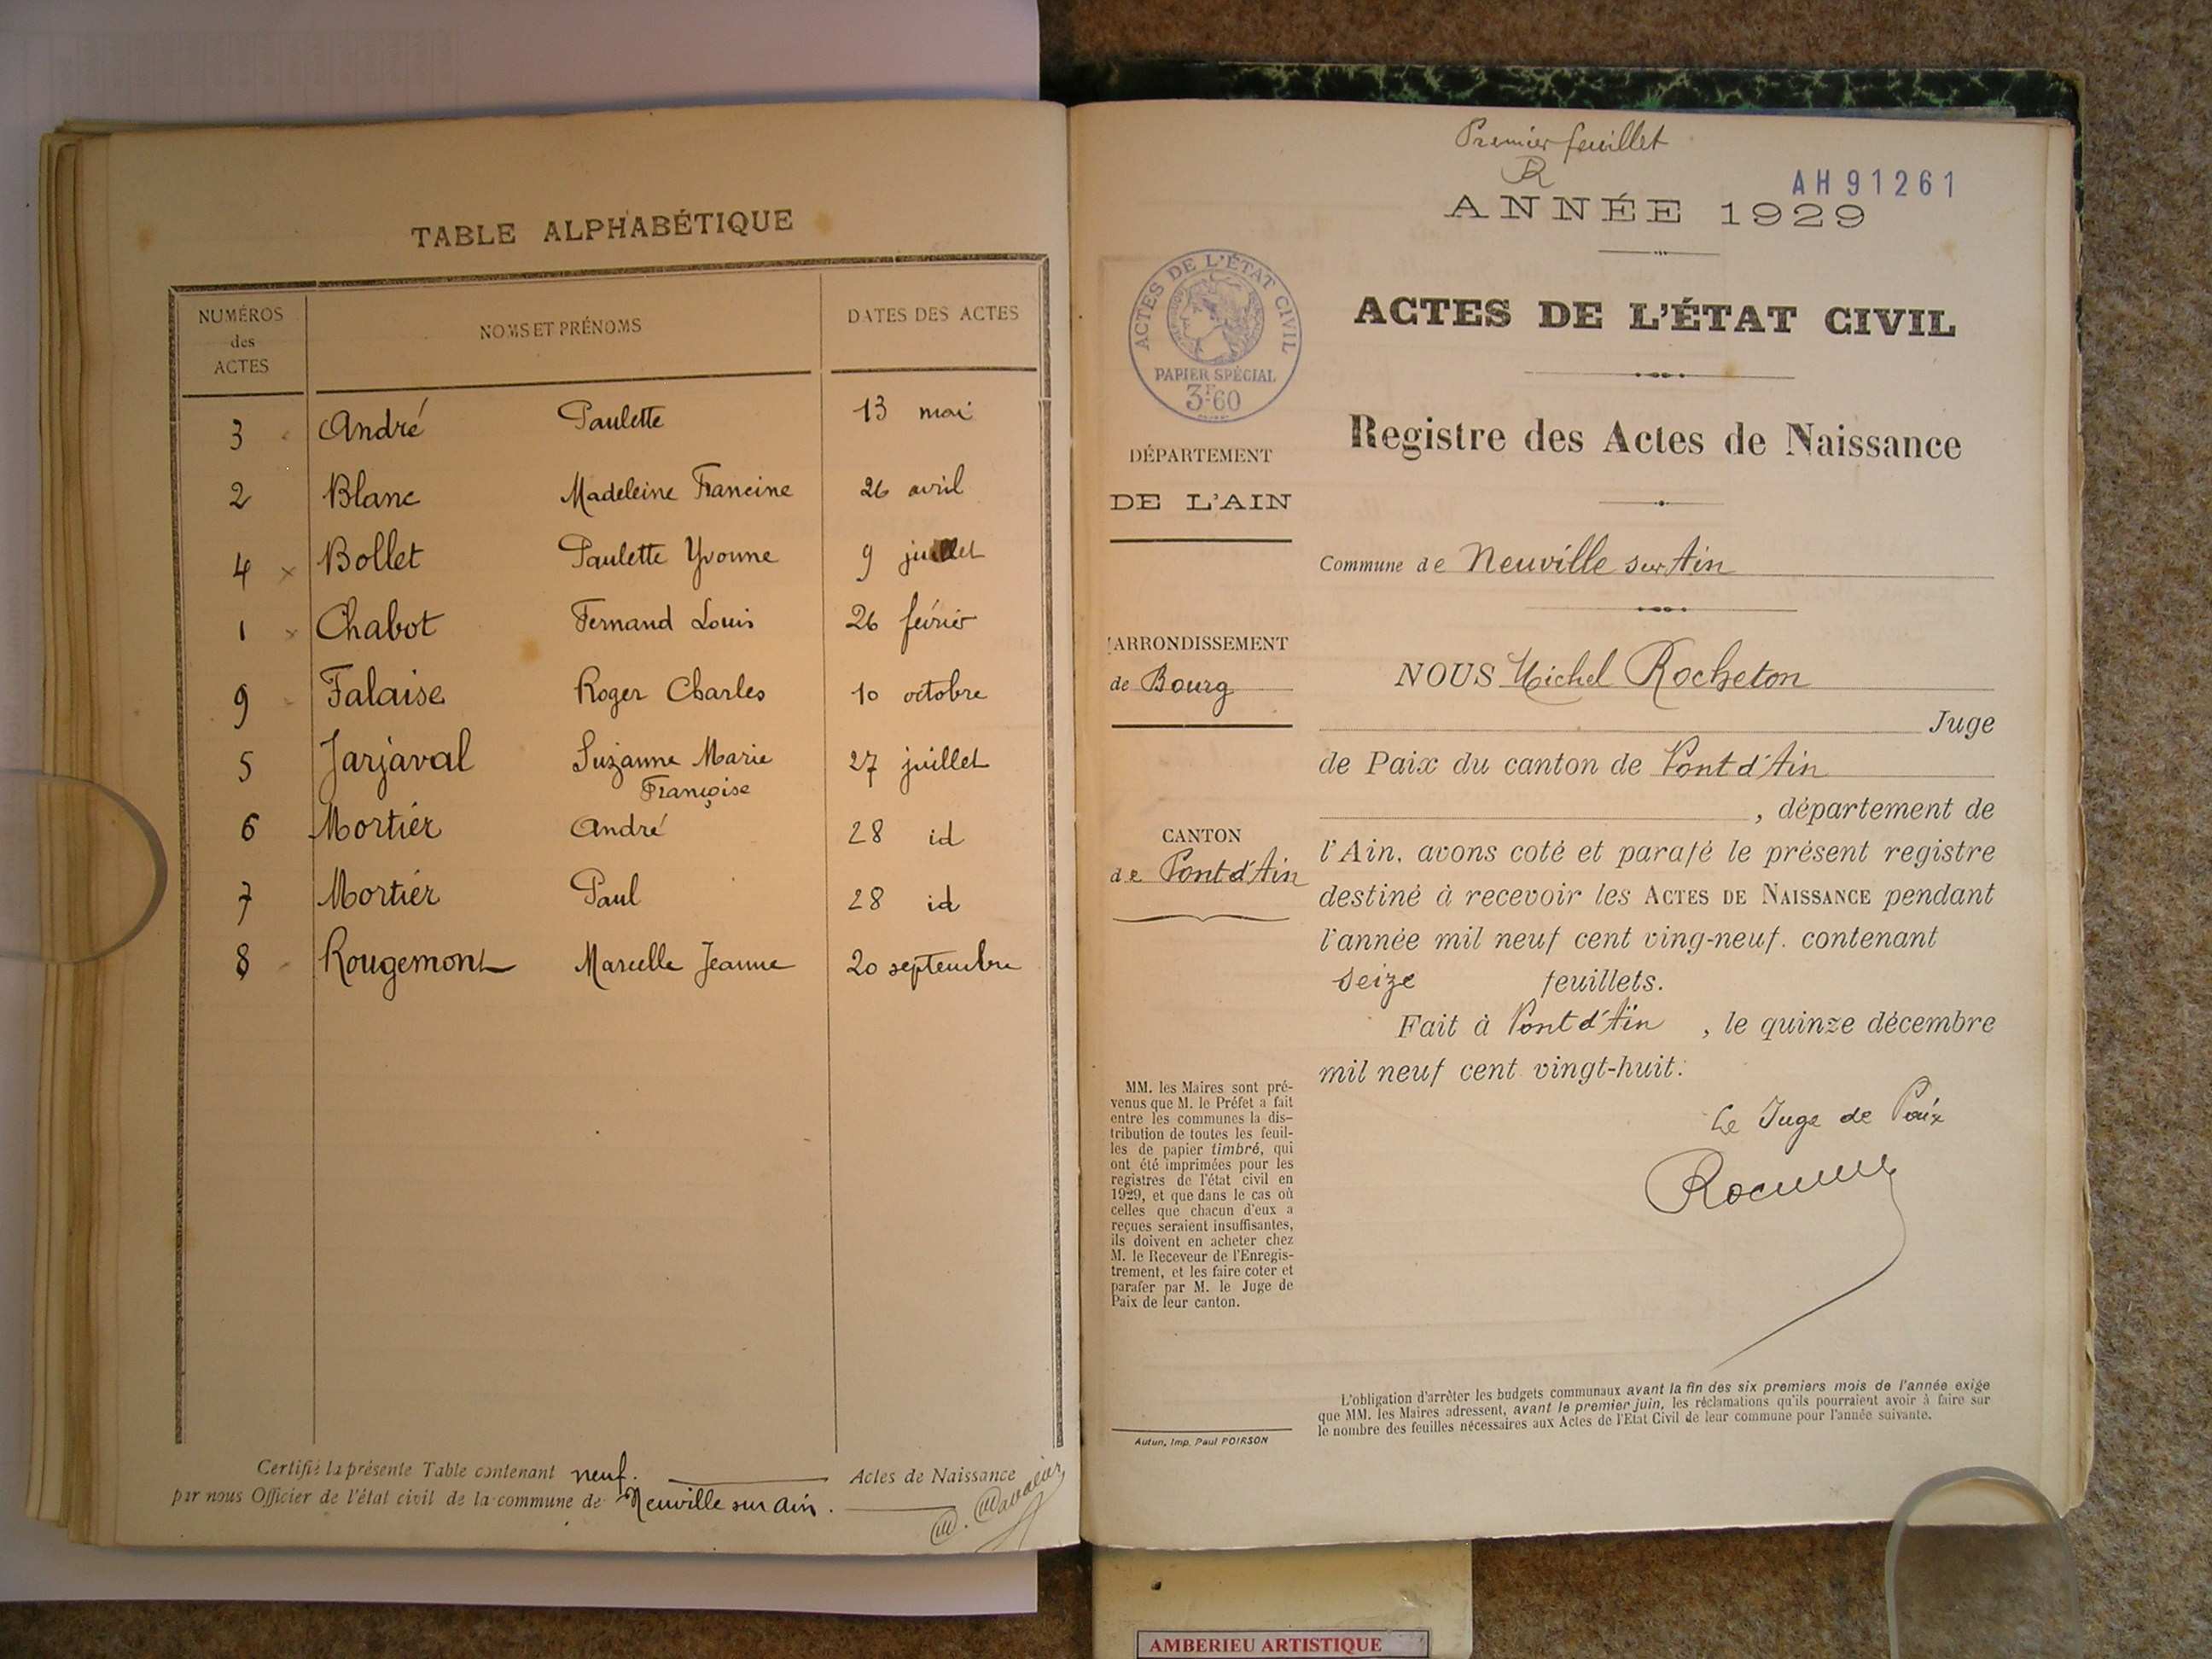 TABLE ALPHABÉTIQUE
NUMÉROS
des
ACTES
NOMS ET PRÉNOMS
DATES DES ACTES
3 André Paulette 13 mai
2 Blanc Madeleine Francine 26 avril
4 x Bollet Paulette Yvonne 9 juillet
1 x Chabot Fernand Louis 26 février
9 Falaise Roger Charles 10 octobre
5 Jarjaval Suzanne Marie 27 juillet
Françoise
6 Mortier André 28 id
7 Mortier Paul 28 id
8 Rougemont Marcelle Jeanne 20 septembre
Certifié la présente Table contenant neuf. Actes de Naissance
par nous Officier de l'état civil de la commune de Neuville sur Ain.
Premier feuillet
R
AH91261
ANNÉE 1929
ACTES DE L'ÉTAT CIVIL
PAPIER SPÉCIAL
3F60
ACTES DE L'ÉTAT CIVIL
Registre des Actes de Naissance
DÉPARTEMENT
DE L'AIN
ARRONDISSEMENT
de Bourg
CANTON
de Pont d'Ain
MM. les Maires sont pré-
venus que M. le Préfet a fait
entre les communes la dis-
tribution de toutes les feuil-
les de papier timbré, qui
ont été imprimées pour les
registres de l'état civil en
1929, et que dans le cas où
celles que chacun d'eux a
reçues seraient insuffisantes,
ils doivent en acheter chez
M. le Receveur de l'Enregis-
trement, et les faire coter et
parafer par M. le Juge de
Paix de leur canton.
Autun, Imp. Paul POIRSON
Commune de Neuville sur Ain
NOUS Michel Rocheton
Juge
de Paix du canton de Pont d'Ain
, département de
l'Ain, avons coté et parafé le présent registre
destiné à recevoir les ACTES DE NAISSANCE pendant
l'année mil neuf cent ving-neuf. contenant
seize feuillets.
Fait à Pont d'Ain , le quinze décembre
mil neuf cent vingt-huit.
Le Juge de Paix
L'obligation d'arrêter les budgets communaux avant la fin des six premiers mois de l'année exige
que MM. les Maires adressent, avant le premier juin, les réclamations qu'ils pourraient avoir à faire sur
le nombre des feuilles nécessaires aux Actes de l'Etat Civil de leur commune pour l'année suivante.
AMBERIEU ARTISTIQUE